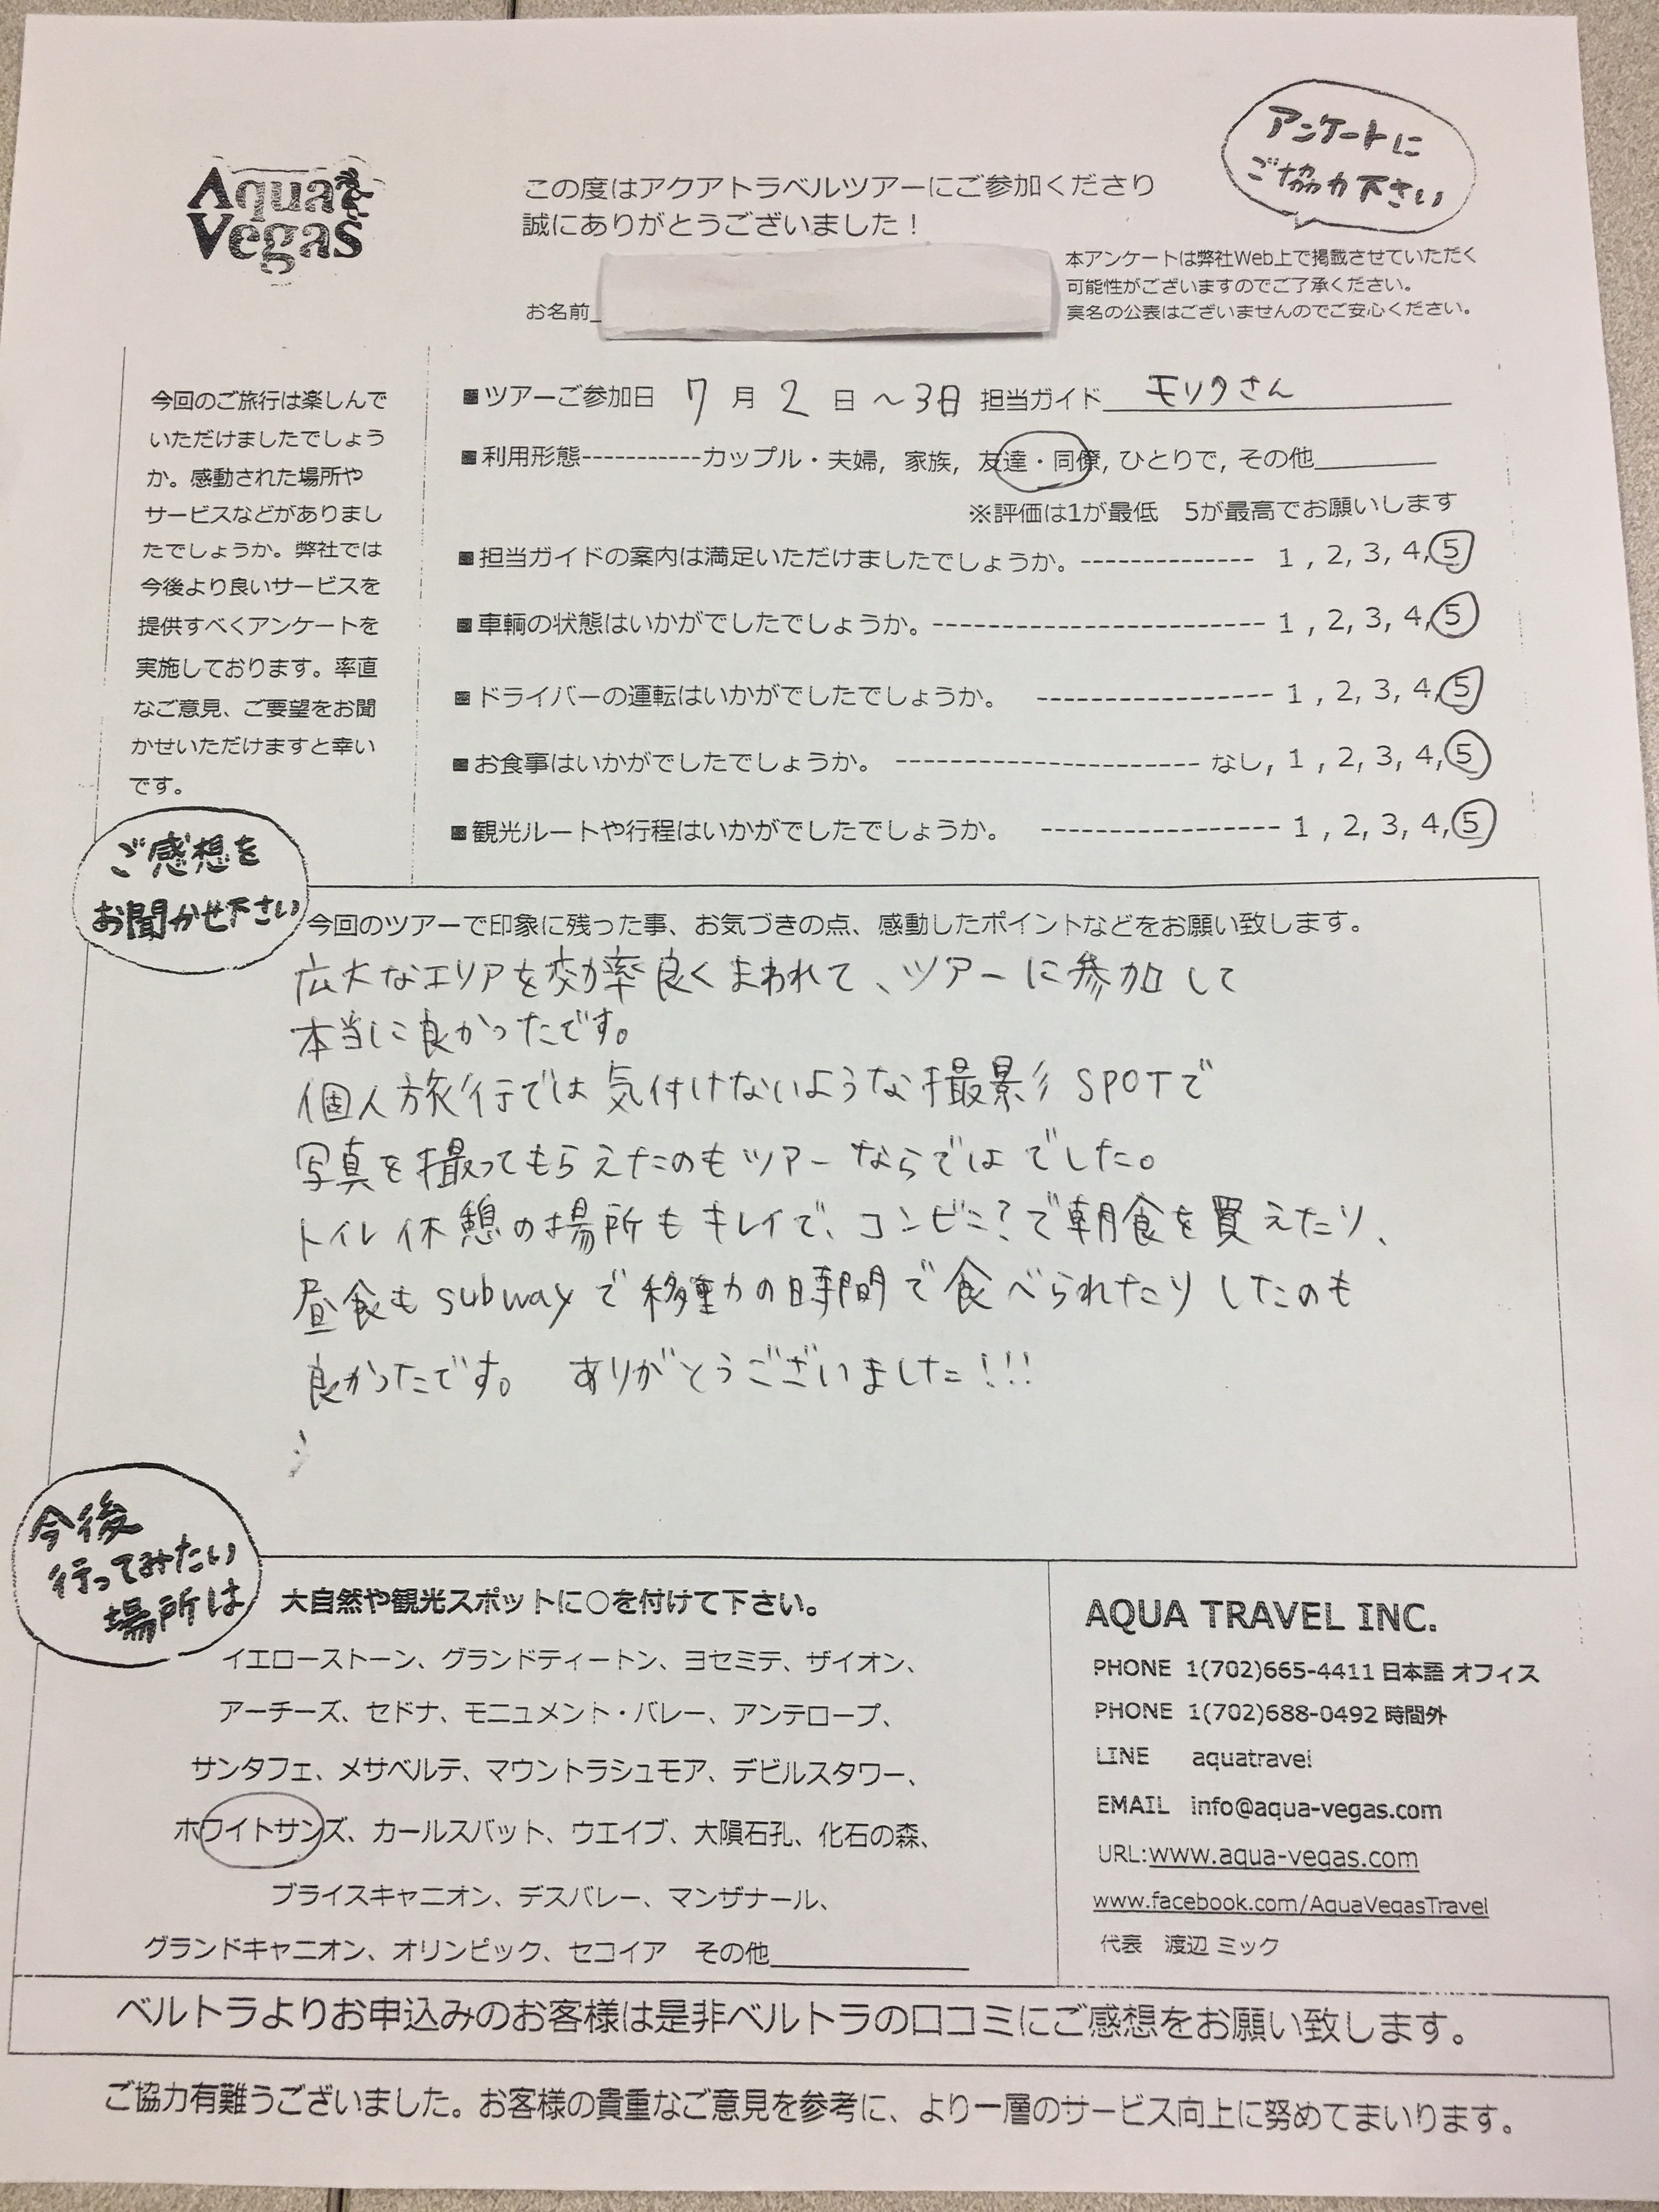 Aqua
Vegas
この度はアクアトラベルツアーにご参加くださり
誠にありがとうございました！
アンケートに
ご協力下さい
本アンケートは弊社Web上で掲載させていただく
可能性がございますのでご了承ください。
実名の公表はございませんのでご安心ください。
お名前
今回のご旅行は楽しんで
いただけましたでしょう
か。感動された場所や
サービスなどがありまし
たでしょうか。弊社では
今後より良いサービスを
提供すべくアンケートを
実施しております。率直
なご意見、ご要望をお聞
かせいただけますと幸い
です。
■ツアーご参加日 7 月 2 日 〜3日 担当ガイド モリタさん
■利用形態-----------カップル・夫婦, 家族, 友達・同僚, ひとりで, その他
※評価は1が最低　5が最高でお願いします
■担当ガイドの案内は満足いただけましたでしょうか。-------------- 1 , 2, 3, 4, 5
■車輌の状態はいかがでしたでしょうか。--------------------------- 1 , 2, 3, 4, 5
■ドライバーの運転はいかがでしたでしょうか。 ------------------- 1 , 2, 3, 4, 5
■お食事はいかがでしたでしょうか。 ------------------------ なし, 1 , 2, 3, 4, 5
■観光ルートや行程はいかがでしたでしょうか。 ------------------- 1 , 2, 3, 4, 5
ご感想を
お聞かせ下さい
今回のツアーで印象に残った事、お気づきの点、感動したポイントなどをお願い致します。
広大なエリアを効率良くまわれて、ツアーに参加して
本当に良かったです。
個人旅行では気付けないような撮影SPOTで
写真を撮ってもらえたのもツアーならではでした。
トイレ休憩の場所もキレイで、コンビニ？で朝食を買えたり、
昼食もsubwayで移動の時間で食べられたりしたのも
良かったです。 ありがとうございました!!!
今後
行ってみたい
場所は
大自然や観光スポットに○を付けて下さい。
イエローストーン、グランドティートン、ヨセミテ、ザイオン、
アーチーズ、セドナ、モニュメント・バレー、アンテロープ、
サンタフェ、メサベルテ、マウントラシュモア、デビルスタワー、
ホワイトサンズ、カールスバット、ウエイブ、大隕石孔、化石の森、
ブライスキャニオン、デスバレー、マンザナール、
グランドキャニオン、オリンピック、セコイア　その他
AQUA TRAVEL INC.
PHONE 1(702)665-4411 日本語 オフィス
PHONE 1(702)688-0492 時間外
LINE aquatravel
EMAIL info@aqua-vegas.com
URL:www.aqua-vegas.com
www.facebook.com/AquaVegasTravel
代表　渡辺 ミック
ベルトラよりお申込みのお客様は是非ベルトラの口コミにご感想をお願い致します。
ご協力有難うございました。お客様の貴重なご意見を参考に、より一層のサービス向上に努めてまいります。